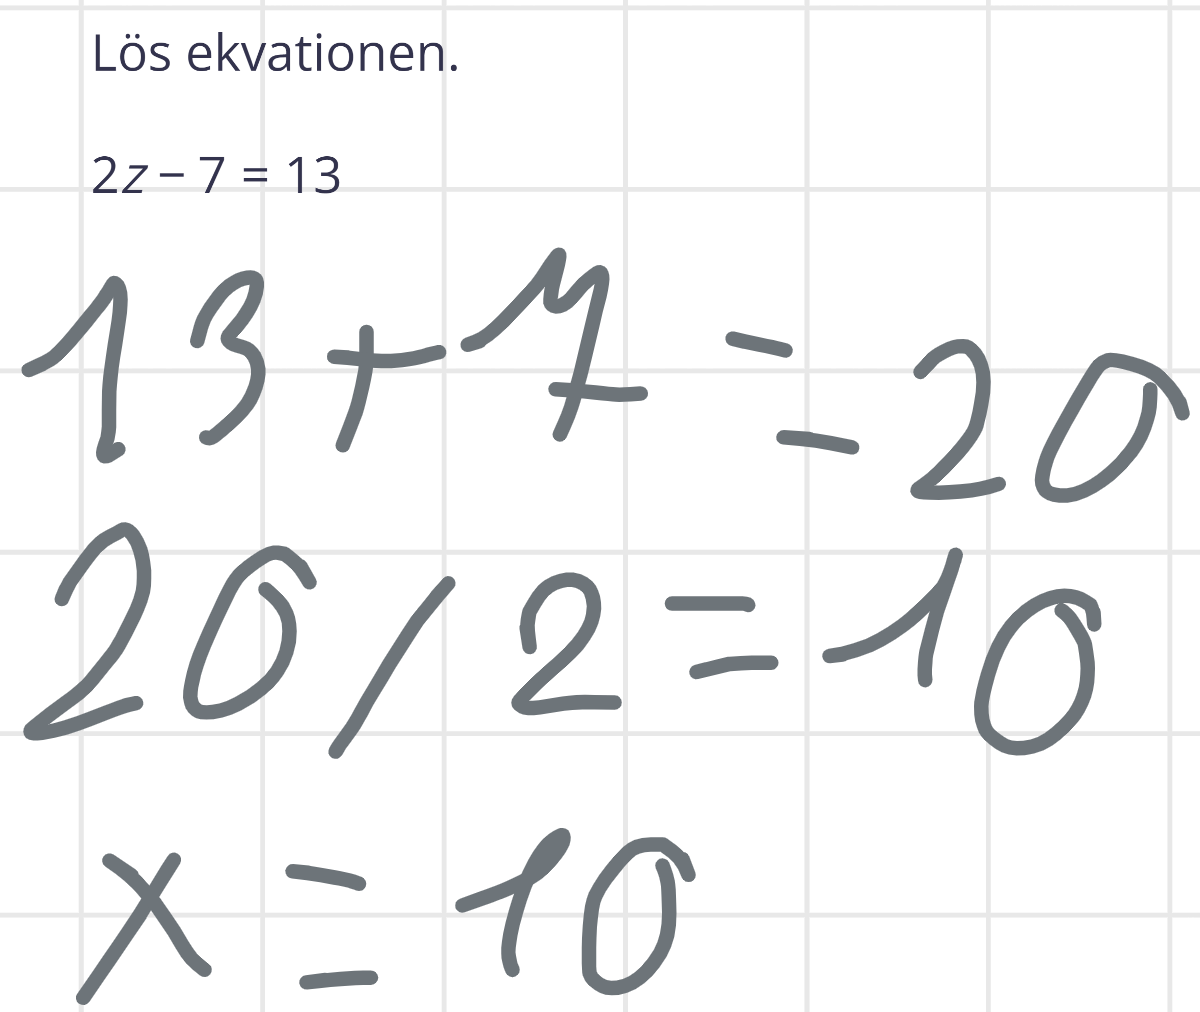 Lös ekvationen.
2z – 7 = 13
13 + 7 = 20
20 / 2 = 10
x = 10